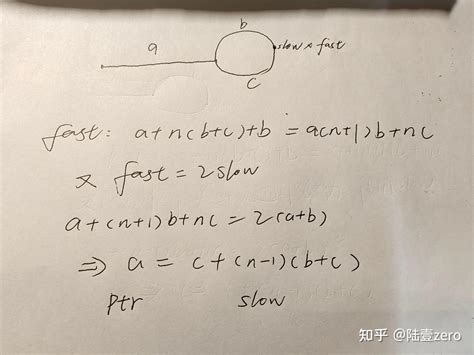 a
b
slow & fast
c
fast: a+n(b+c)+b = a(n+1)b+nc
又 fast = 2slow
a+(n+1)b+nc = 2(a+b)
⇒ a = c+(n-1)(b+c)
ptr slow
知乎 @陆壹zero